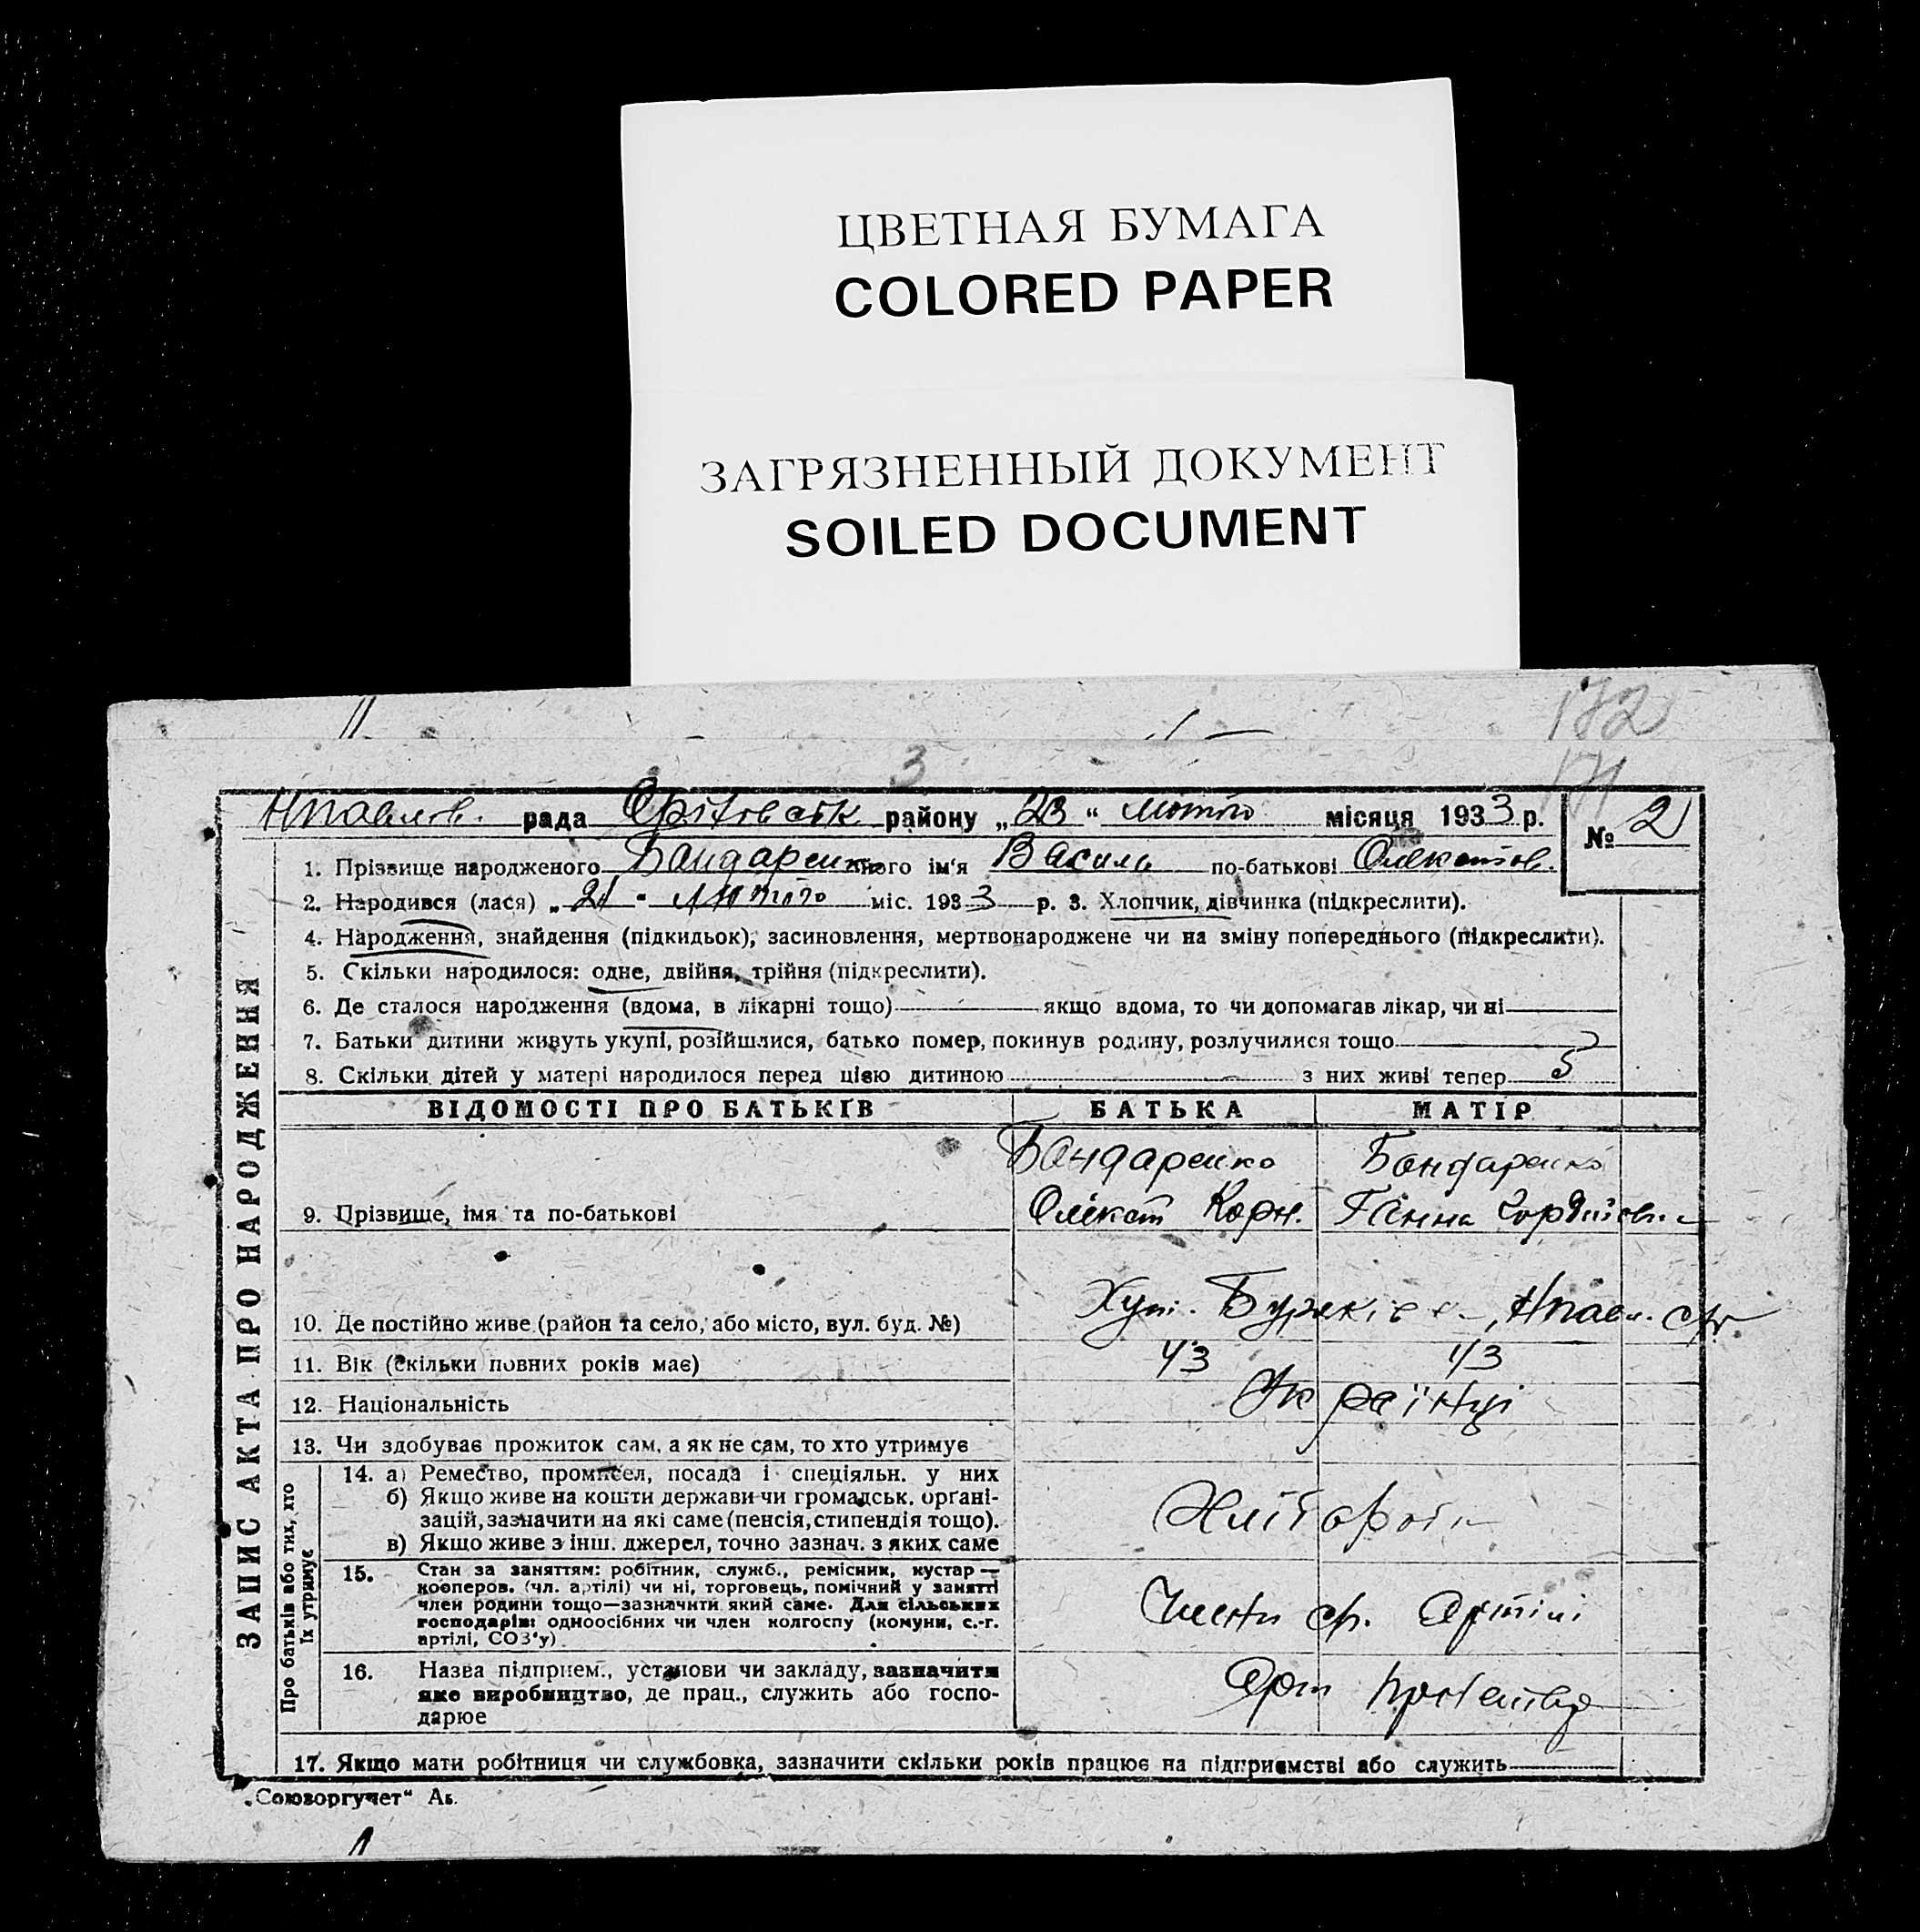 ЦВЕТНАЯ БУМАГА
COLORED PAPER
ЗАГРЯЗНЕННЫЙ ДОКУМЕНТ
SOILED DOCUMENT
172
171
3
Нпавлов. рада району „23“ лютого місяця 1933 р. № 2
1. Прізвище народженого Бандаренко його ім'я Василь по-батькові Олексійов.
2. Народився (лася) „21“ лютого міс. 1933 р. 3. Хлопчик, дівчинка (підкреслити).
4. Народження, знайдення (підкидьок), засиновлення, мертвонароджене чи на зміну попереднього (підкреслити).
5. Скільки народилося: одне, двійня, трійня (підкреслити).
6. Де сталося народження (вдома, в лікарні тощо) якщо вдома, то чи допомагав лікар, чи ні
7. Батьки дитини живуть укупі, розійшлися, батько помер, покинув родину, розлучилися тощо
8. Скільки дітей у матері народилося перед цією дитиною з них живі тепер 5
ЗАПИС АКТА ПРО НАРОДЖЕННЯ
ВІДОМОСТІ ПРО БАТЬКІВ БАТЬКА МАТІР
Бандаренко Бондаренко
9. Прізвище, імя та по-батькові Корн. Ганна
10. Де постійно живе (район та село, або місто, вул. буд. №) Хут. Нпавл. с/р
11. Вік (скільки повних років має) 43 43
12. Національність Українці
13. Чи здобуває прожиток сам, а як не сам, то хто утримує
Про батьків або тих, хто їх утримує
14. а) Ремество, промисел, посада і спеціяльн. у них
б) Якщо живе на кошти держави чи громадськ. організацій, зазначити на які саме (пенсія, стипендія тощо).
в) Якщо живе з інш. джерел, точно зазнач. з яких саме
Хліборобт
15. Стан за заняттям: робітник, служб., ремісник, кустар—
кооперов. (чл. артілі) чи ні, торговець, помічний у занятті
член родини тощо—зазначити який саме. Для сільських
господарів: одноосібних чи член колгоспу (комуни, с.-г.
артілі, СОЗ'у)
Члени ср. Артілі
16. Назва підприєм., установи чи закладу, зазначити
яке виробництво, де прац., служить або госпо-
дарює
Арт
17. Якщо мати робітниця чи службовка, зазначити скільки років працює на підприємстві або служить
„Союзоргучет“